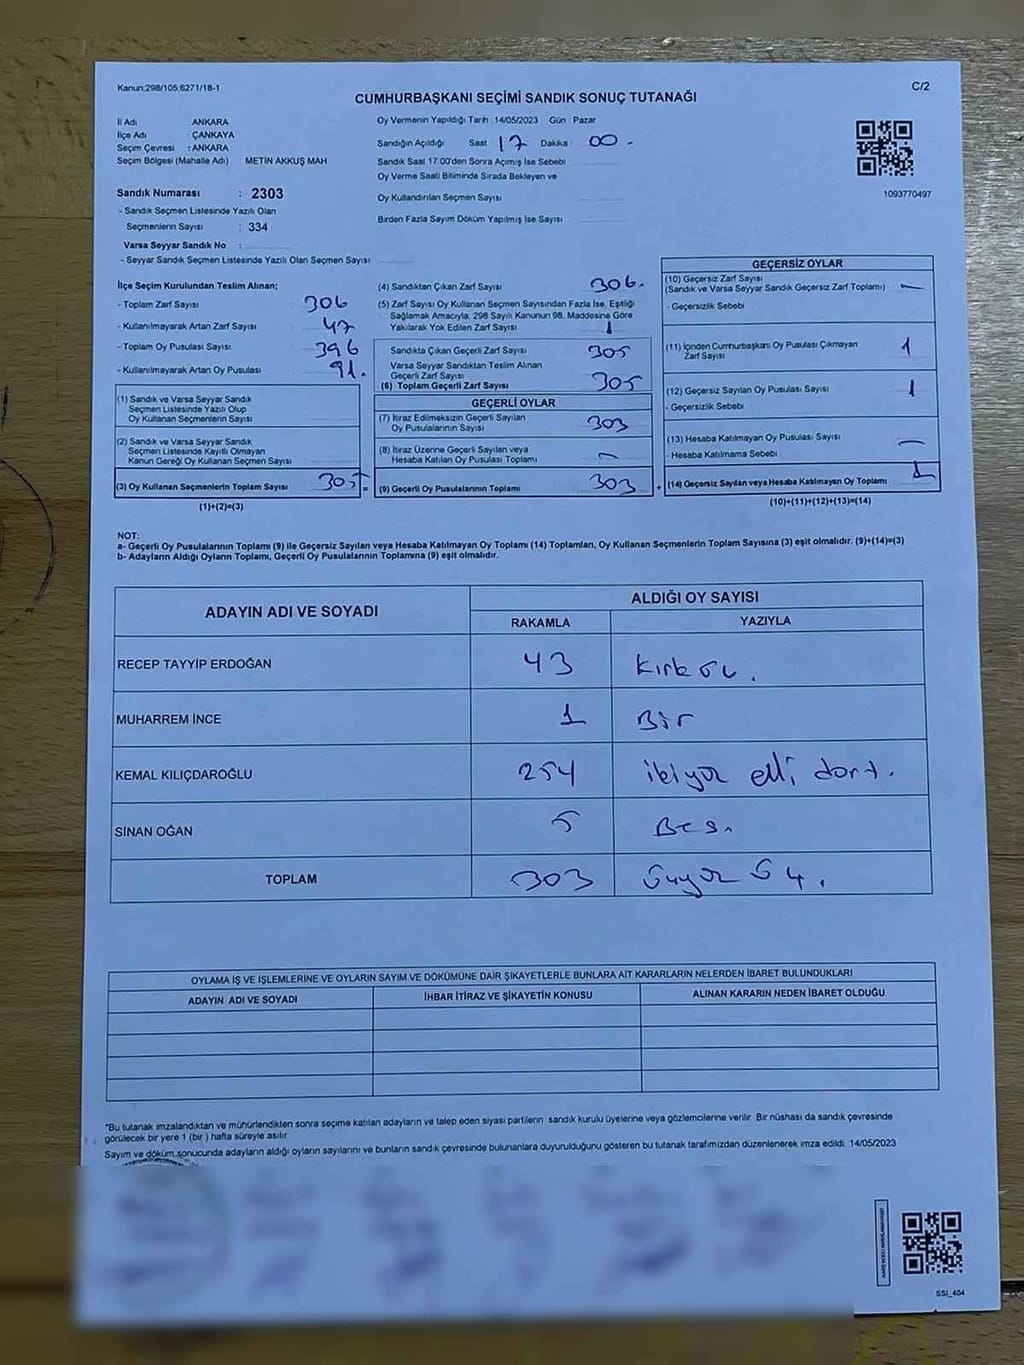 Kanun;298/105,6271/18-1
C/2
CUMHURBAŞKANI SEÇİMİ SANDIK SONUÇ TUTANAĞI
İl Adı ANKARA
İlçe Adı ÇANKAYA
Seçim Çevresi : ANKARA
Seçim Bölgesi (Mahalle Adı) METİN AKKUŞ MAH
Sandık Numarası : 2303
- Sandık Seçmen Listesinde Yazılı Olan
Seçmenlerin Sayısı : 334
Varsa Seyyar Sandık No :
- Seyyar Sandık Seçmen Listesinde Yazılı Olan Seçmen Sayısı
Oy Vermenin Yapıldığı Tarih : 14/05/2023 Gün : Pazar
Sandığın Açıldığı Saat 17 Dakika 00
Sandık Saat 17:00'den Sonra Açımış İse Sebebi
Oy Verme Saati Bitiminde Sırada Bekleyen ve
Oy Kullandırılan Seçmen Sayısı
Birden Fazla Sayım Döküm Yapılmış İse Sayısı
1093770497
İlçe Seçim Kurulundan Teslim Alınan;
- Toplam Zarf Sayısı 306
- Kullanılmayarak Artan Zarf Sayısı 47
- Toplam Oy Pusulası Sayısı 396
- Kullanılmayarak Artan Oy Pusulası 91.
(1) Sandık ve Varsa Seyyar Sandık
Seçmen Listesinde Yazılı Olup
Oy Kullanan Seçmenlerin Sayısı
(2) Sandık ve Varsa Seyyar Sandık
Seçmen Listesinde Kayıtlı Olmayan
Kanun Gereği Oy Kullanan Seçmen Sayısı
(3) Oy Kullanan Seçmenlerin Toplam Sayısı 305 =
(1)+(2)=(3)
(4) Sandıktan Çıkan Zarf Sayısı 306.
(5) Zarf Sayısı Oy Kullanan Seçmen Sayısından Fazla İse, Eşitliği
Sağlamak Amacıyla, 298 Sayılı Kanunun 98. Maddesine Göre
Yakılarak Yok Edilen Zarf Sayısı 1
Sandıkta Çıkan Geçerli Zarf Sayısı 305
Varsa Seyyar Sandıktan Teslim Alınan
Geçerli Zarf Sayısı
(6) Toplam Geçerli Zarf Sayısı 305
GEÇERLİ OYLAR
(7) İtiraz Edilmeksizin Geçerli Sayılan
Oy Pusulalarının Sayısı 303
(8) İtiraz Üzerine Geçerli Sayılan veya
Hesaba Katılan Oy Pusulası Toplamı —
(9) Geçerli Oy Pusulalarının Toplamı 303 +
GEÇERSİZ OYLAR
(10) Geçersiz Zarf Sayısı
(Sandık ve Varsa Seyyar Sandık Geçersiz Zarf Toplamı) —
- Geçersizlik Sebebi
(11) İçinden Cumhurbaşkanı Oy Pusulası Çıkmayan
Zarf Sayısı 1
(12) Geçersiz Sayılan Oy Pusulası Sayısı 1
- Geçersizlik Sebebi
(13) Hesaba Katılmayan Oy Pusulası Sayısı —
- Hesaba Katılmama Sebebi
(14) Geçersiz Sayılan veya Hesaba Katılmayan Oy Toplamı
(10)+(11)+(12)+(13)=(14)
NOT:
a- Geçerli Oy Pusulalarının Toplamı (9) ile Geçersiz Sayılan veya Hesaba Katılmayan Oy Toplamı (14) Toplamları, Oy Kullanan Seçmenlerin Toplam Sayısına (3) eşit olmalıdır. (9)+(14)=(3)
b- Adayların Aldığı Oyların Toplamı, Geçerli Oy Pusulalarının Toplamına (9) eşit olmalıdır.
ADAYIN ADI VE SOYADI ALDIĞI OY SAYISI
RAKAMLA YAZIYLA
RECEP TAYYİP ERDOĞAN 43 Kırk üç.
MUHARREM İNCE 1 Bir
KEMAL KILIÇDAROĞLU 254 ikiyüz elli dört.
SİNAN OĞAN 5 Beş.
TOPLAM 303 Üçyüz Üç.
OYLAMA İŞ VE İŞLEMLERİNE VE OYLARIN SAYIM VE DÖKÜMÜNE DAİR ŞİKAYETLERLE BUNLARA AİT KARARLARIN NELERDEN İBARET BULUNDUKLARI
ADAYIN ADI VE SOYADI İHBAR İTİRAZ VE ŞİKAYETİN KONUSU ALINAN KARARIN NEDEN İBARET OLDUĞU
"Bu tutanak imzalandıktan ve mühürlendikten sonra seçime katılan adayların ve talep eden siyasi partilerin sandık kurulu üyelerine veya gözlemcilerine verilir. Bir nüshası da sandık çevresinde
görülecek bir yere 1 (bir) hafta süreyle asılır
Sayım ve döküm sonucunda adayların aldığı oyların sayılarını ve bunların sandık çevresinde bulunanlara duyurulduğunu gösteren bu tutanak tarafımızdan düzenlenerek imza edildi. 14/05/2023
SSİ_404